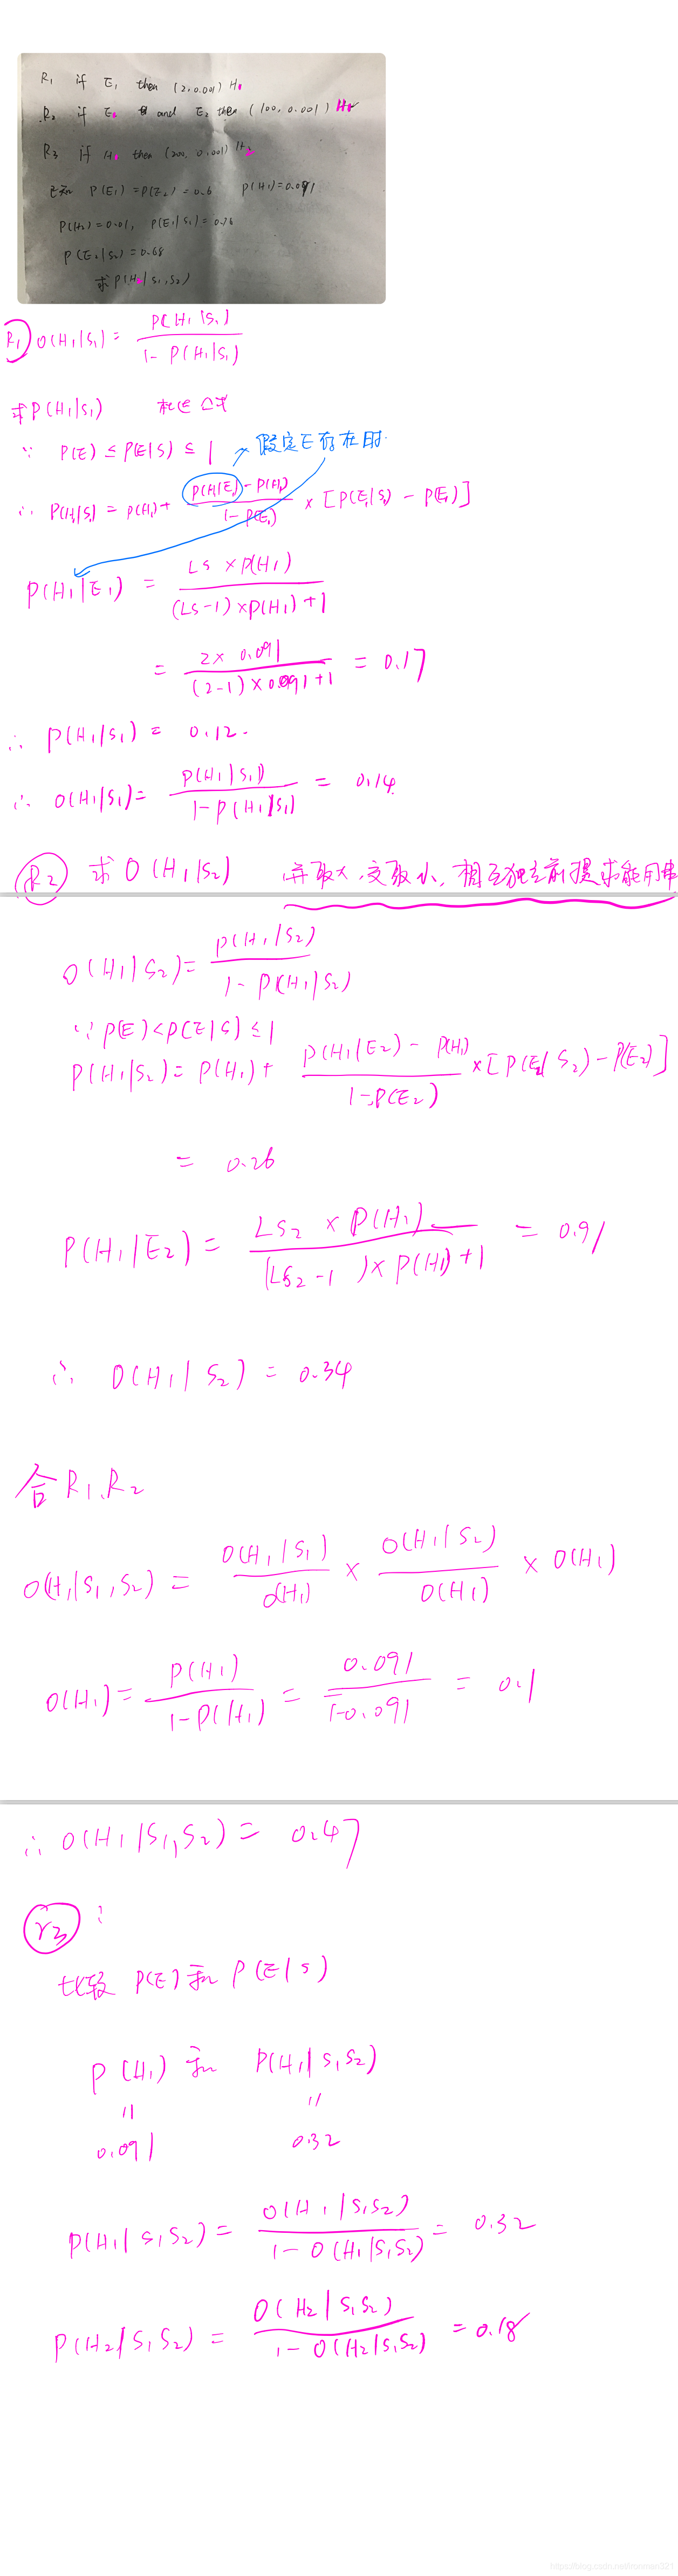 R₁ if E₁ then (2, 0.001) H₁
R₂ if E₁ and E₂ then (100, 0.001) H₁
R₃ if H₁ then (200, 0.001) H₂
已知 P(E₁)=P(E₂)=0.6 P(H₁)=0.091
P(H₂)=0.01, P(E₁|S₁)=0.76
P(E₂|S₂)=0.68
求P(H₂|S₁,S₂)
R₁ O(H₁|S₁) = P(H₁|S₁) / 1-P(H₁|S₁)
求P(H₁|S₁) 公式
∵ P(E) ≤ P(E|S) ≤ 1 假定E存在时
∴ P(H₁|S₁) = P(H₁) + P(H₁|E₁)-P(H₁) / 1-P(E₁) × [P(E₁|S₁) - P(E₁)]
P(H₁|E₁) = LS × P(H₁) / (LS-1)×P(H₁)+1
= 2×0.091 / (2-1)×0.091+1 = 0.17
∴ P(H₁|S₁) = 0.12
∴ O(H₁|S₁) = P(H₁|S₁) / 1-P(H₁|S₁) = 0.14
R₂ 求 O(H₁|S₂) 并取大,交取小,相互独立前提才能用
O(H₁|S₂) = P(H₁|S₂) / 1-P(H₁|S₂)
∵ P(E)<P(E|S)≤1
P(H₁|S₂) = P(H₁) + P(H₁|E₂)-P(H₁) / 1-P(E₂) × [P(E₂|S₂)-P(E₂)]
= 0.26
P(H₁|E₂) = LS₂ × P(H₁) / (LS₂-1)×P(H₁)+1 = 0.91
∴ O(H₁|S₂) = 0.34
合R₁、R₂
O(H₁|S₁,S₂) = O(H₁|S₁) / O(H₁) × O(H₁|S₂) / O(H₁) × O(H₁)
O(H₁) = P(H₁) / 1-P(H₁) = 0.091 / 1-0.091 = 0.1
∴ O(H₁|S₁,S₂) = 0.47
r₃:
比较 P(E) 和 P(E|S)
P(H₁) 和 P(H₁|S₁S₂)
= =
0.091 0.32
P(H₁|S₁S₂) = O(H₁|S₁S₂) / 1-O(H₁|S₁S₂) = 0.32
P(H₂|S₁S₂) = O(H₂|S₁S₂) / 1-O(H₂|S₁S₂) = 0.18